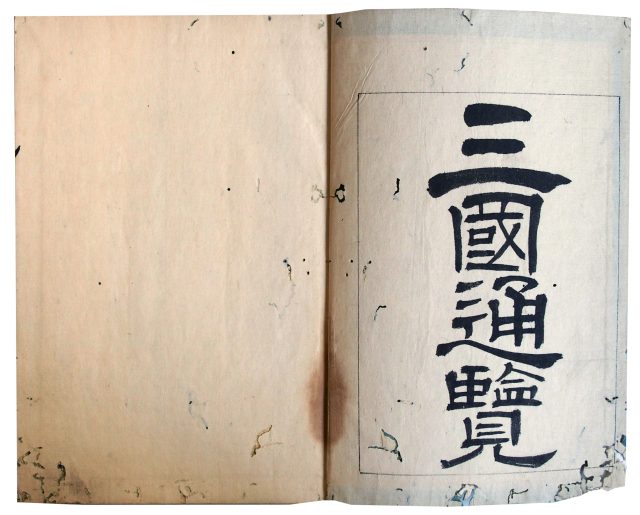 三國通覽